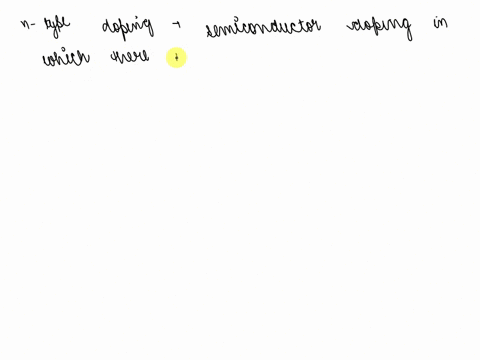 n-type doping → semiconductor doping in
which there